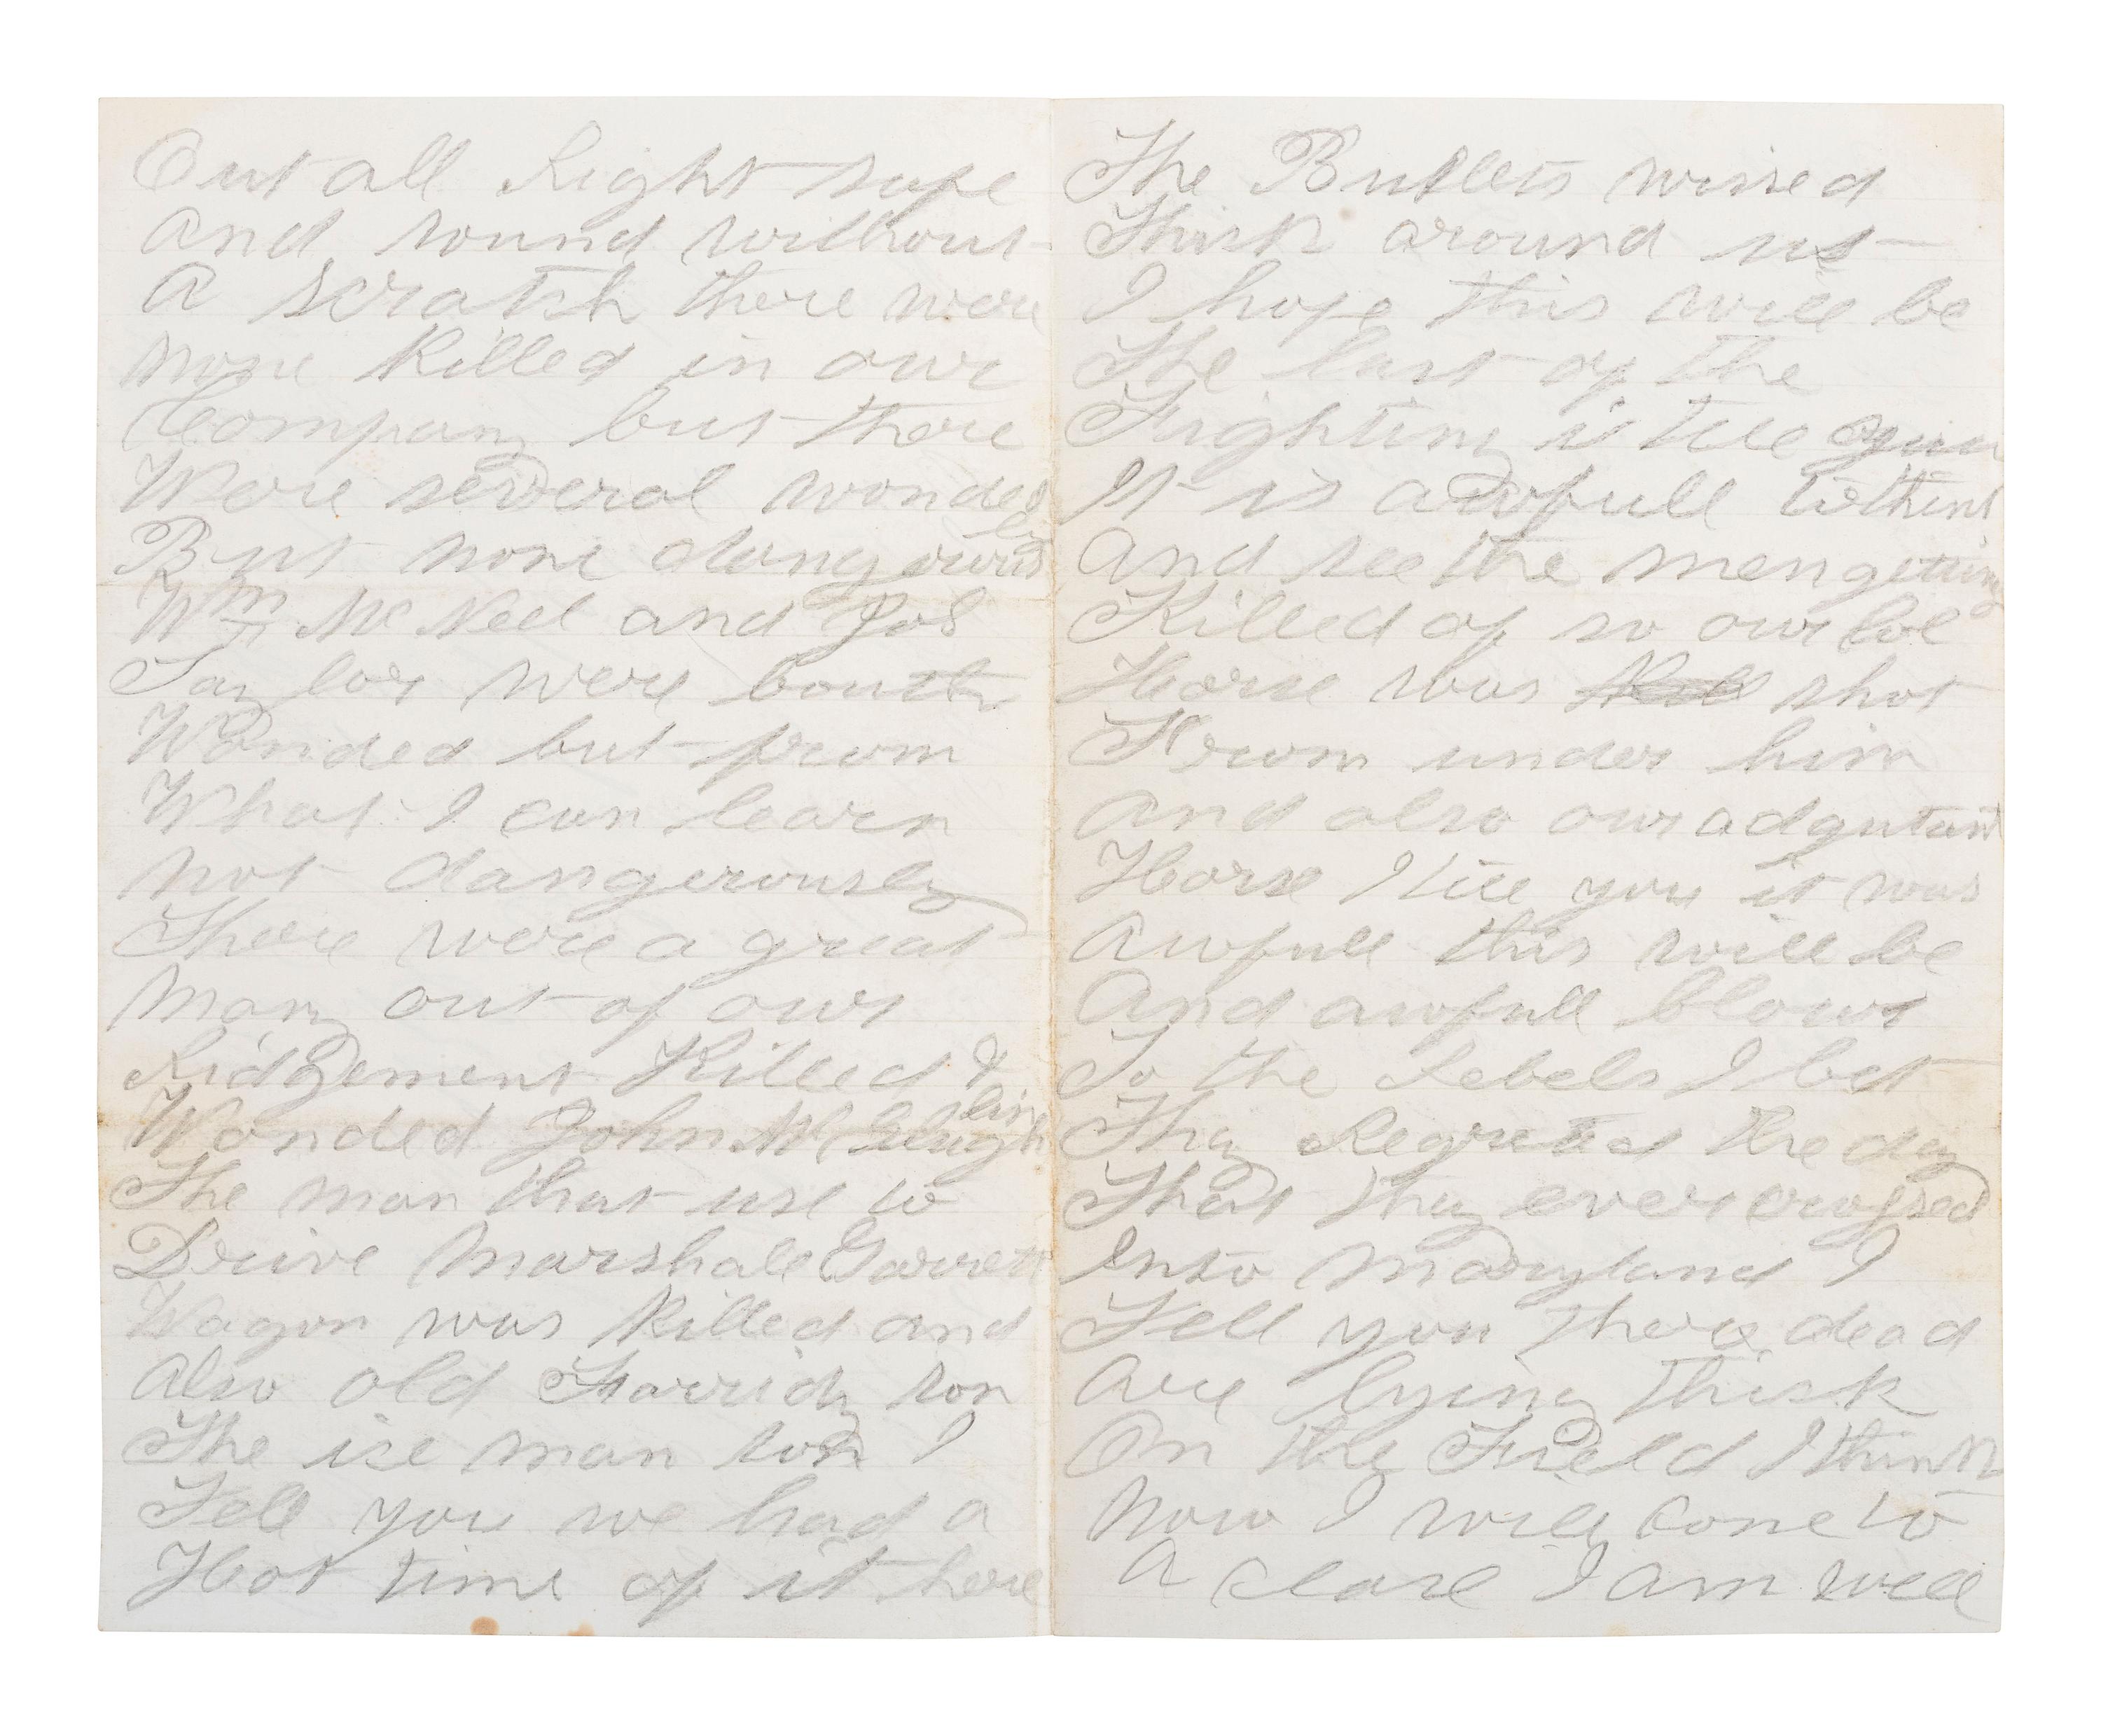 Out all Right safe
And sound without
A scratch there were
none Killed in our
Company but there
Were several wonded
But none dangerously
Wm McNeel and Job
Taylor were bouth
Wonded but from
What I can learn
not dangerously
There were a great
many out of our
Ridgement Killed &
Wonded John Mc
The man that use to
Drive Marshale Garrett
Wagon was Killed and
Also old son
The ise man son I
Tell you we had a
Hot time of it here
The Bullets wised
Thisk around us
I hope this will be
The last of the
Fighting
It is awfull to think
And see the men getting
Killed of so our Col
Horse was Kill shot
From under him
And also our adgutant
Horse I tell you it was
Awfull this will be
And awfull blows
To the Rebels I bet
Thay Regreted the day
That thay ever crossed
Into Maryland I
Tell you there dead
Are lying thisk
On the Field I think
Now I will come to
A close I am well